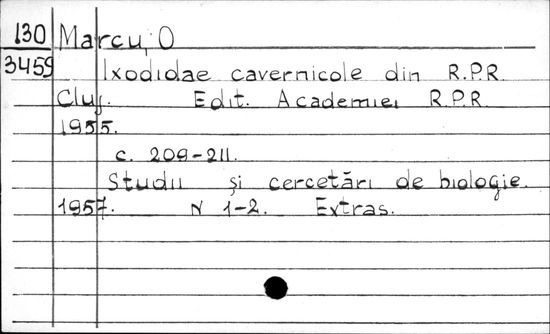 130 Marcu, O
3459 Ixodidae cavernicole din R.P.R.
Cluj. Edit. Academiei R.P.R
1955.
c. 209-211.
Studii și cercetări de biologie.
1957. N 1-2. Extras.